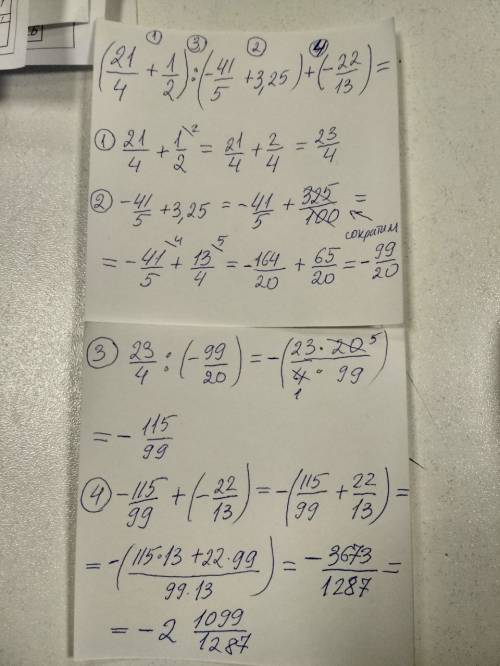 ① ③ ② ④
(21/4 + 1/2) : (-41/5 + 3,25) + (-22/13) =
① 21/4 + 1/2 \2 = 21/4 + 2/4 = 23/4
② -41/5 + 3,25 = -41/5 + 325/100 =
сократим
= -41/5 \4 + 13/4 \5 = -164/20 + 65/20 = -99/20
③ 23/4 : (-99/20) = -(23·20 5/4·99)
1
= -115/99
④ -115/99 + (-22/13) = -(115/99 + 22/13) =
= -(115·13 + 22·99/99·13) = -3673/1287 =
= -2 1099/1287